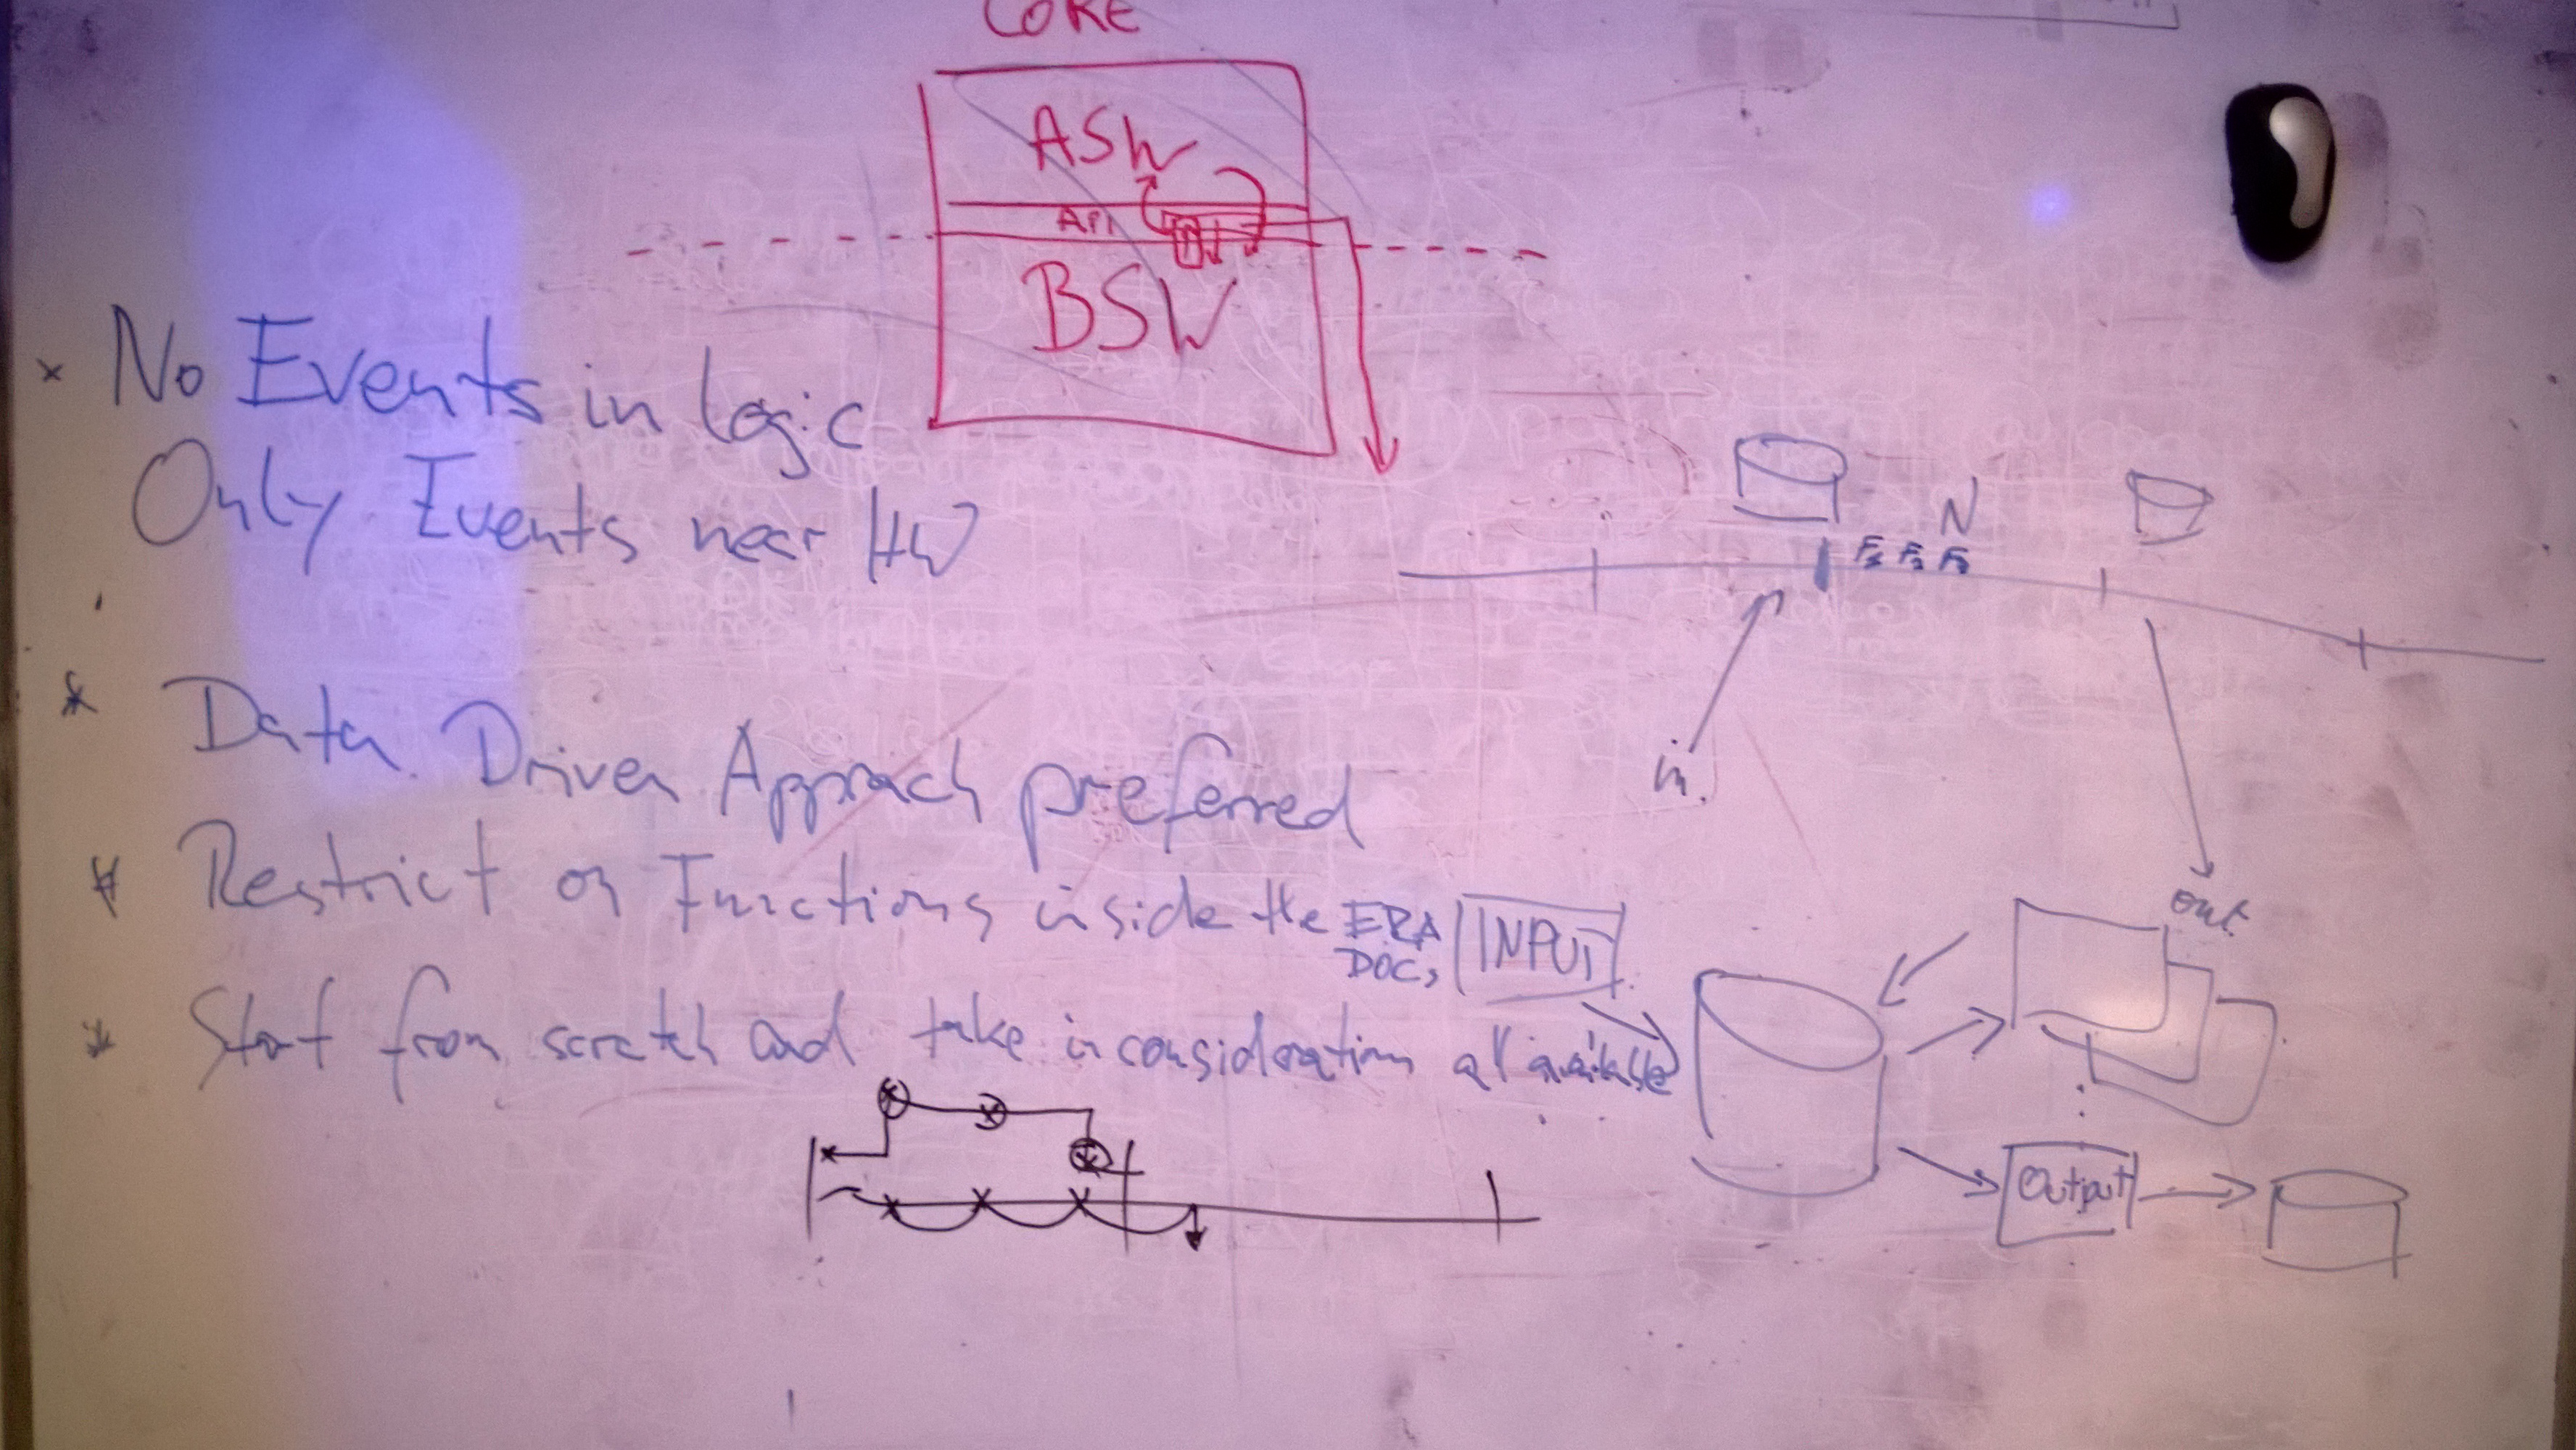 CORE
ASW
API
BSW
× No Events in Logic
Only Events near HW
N
in.
* Data Driven Apprach preferred
* Restrict on Functions inside the ERA
DOCs
INPUT
out
* Start from scratch and take in consideration all available
Output